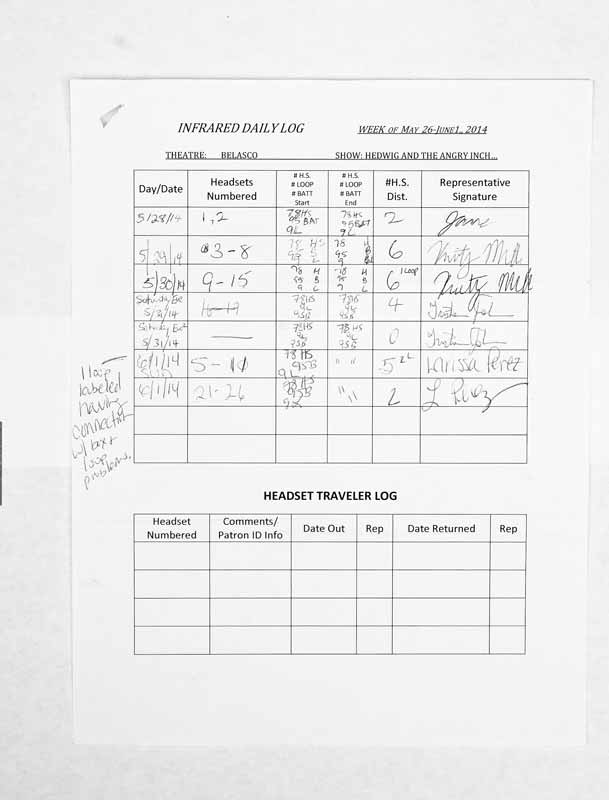 INFRARED DAILY LOG WEEK OF MAY 26-JUNE1, 2014
THEATRE: BELASCO SHOW: HEDWIG AND THE ANGRY INCH...
Day/Date Headsets Numbered # H.S. # LOOP # BATT Start # H.S. # LOOP # BATT End #H.S. Dist. Representative Signature
5/28/14 1,2 78HS 95BAT 9L 78HS 95BAT 9L 2 Jane
5/29/14 3-8 78 HS 95 B 9 L 78 H 95 B 9 L 6
5/30/14 9-15 78 H 95 B 9 L 78 H 95 B 9 L 6 1 LOOP
Saturday 5/31/14 16-19 78HS 9L 95B 78HS 9L 95B 4
Saturday 5/31/14 — 78HS 9L 95B 78HS 9L 95B 0
6/1/14 5-10 78 HS 95B 9L " " 5 2L Larissa Perez
6/1/14 21-26 78HS 95B 9L " " 2 L Perez
1 loop
labeled
having
connection
w/ box +
loop
problems.
HEADSET TRAVELER LOG
Headset Numbered Comments/ Patron ID Info Date Out Rep Date Returned Rep